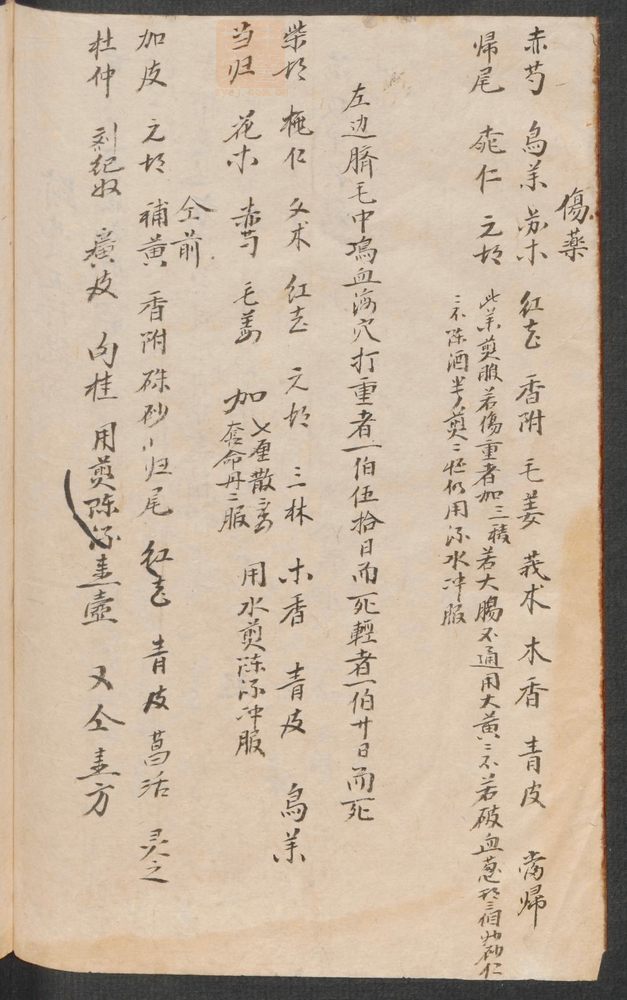 傷藥
赤芍 烏药 苏木 红花 香附 毛姜 莪术 木香 青皮 當歸
歸尾 桃仁 元胡
此药煎服若傷重者加三棱若大腸不通用大黄二不若破血葱 三個 砂仁
三不陈酒半 煎 仍用 水冲服
左边臍毛中 血海穴打重者一伯伍拾日而死輕者一伯廿日而死
柴胡 桃仁 文术 红花 元胡 三林 木香 青皮 烏药
当归 花木 赤芍 毛姜 加 七厘散三 
奪命丹二服
用水煎陈 冲服
仝前
加皮 元胡 補黄 香附 硃砂 归尾 红花 青皮 活 灵之
杜仲 刘纪奴 廣皮 向桂 用煎陈 壹壶 又仝 方